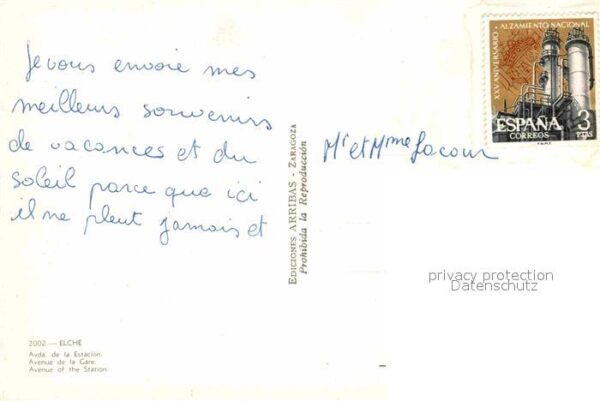 Je vous envoie mes
meilleurs souvenirs
de vacances et du
soleil parce que ici
il ne pleut jamais et
2002. — ELCHE
Avda. de la Estación.
Avenue de la Gare.
Avenue of the Station.
EDICIONES ARRIBAS - ZARAGOZA
Prohibida la Reproducción
XXV ANIVERSARIO • ALZAMIENTO NACIONAL
ESPAÑA
CORREOS
3
PTAS
Mr et Mme Lacour
privacy protection
Datenschutz